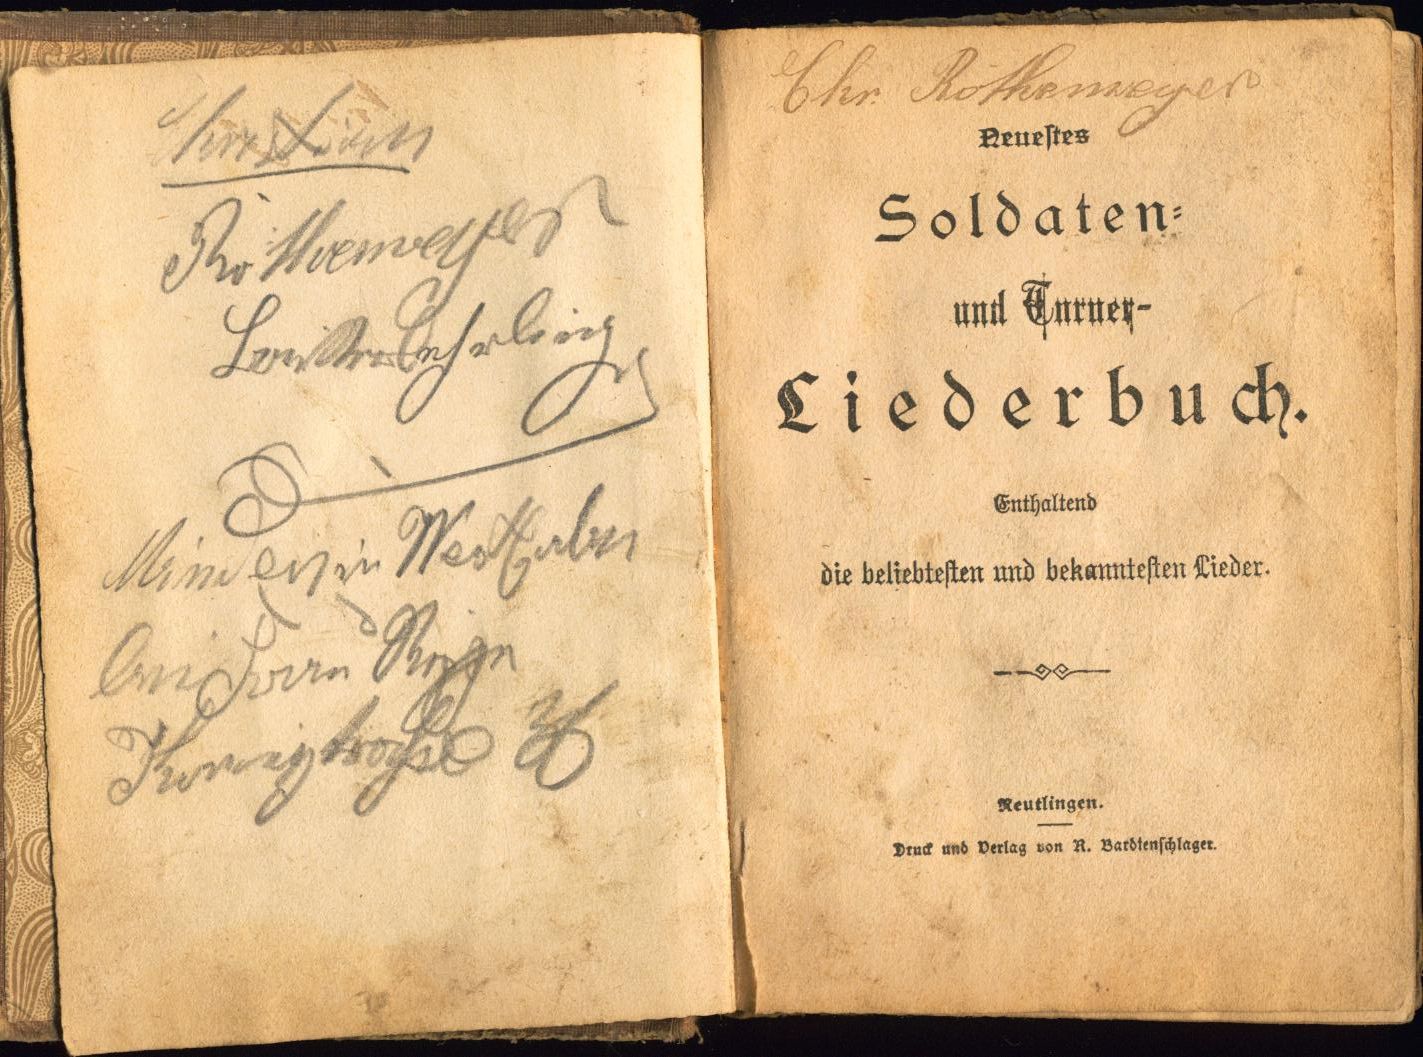 Christian
Röthemeyer
Minden in Westfalen
Königstraße 36
Chr. Röthemeyer
Neueſtes
Soldaten-
und Turner-
Liederbuch.
Enthaltend
die beliebteſten und bekannteſten Lieder.
Reutlingen.
Druck und Verlag von R. Bardtenſchlager.